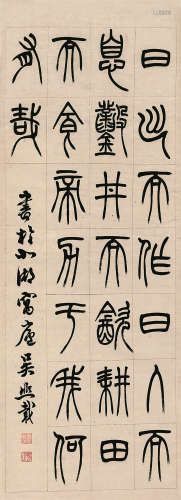 日出而作日入而
息鑿井而飲耕田
而食帝力于我何
有哉
書於小湖寓廬吳熙載